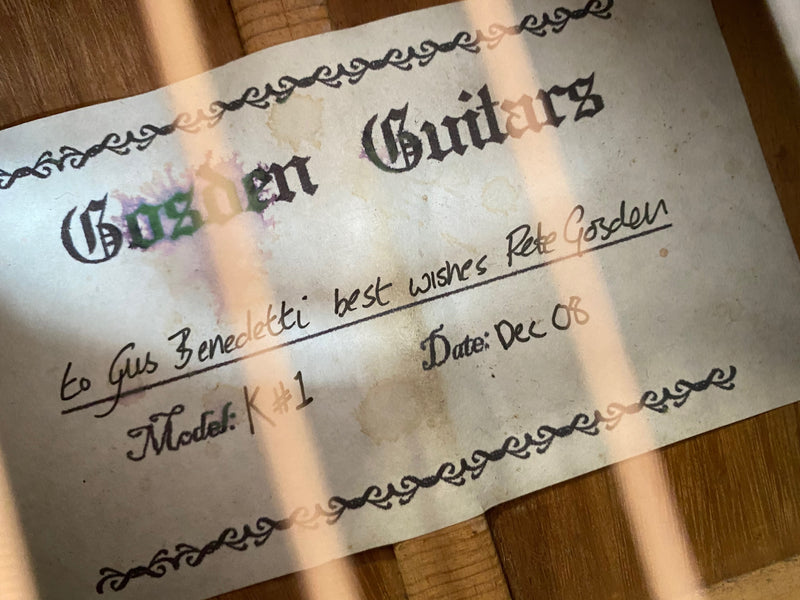 Gosden Guitars
to Gus Benedetti best wishes Pete Gosden
Model: K #1 Date: Dec 08